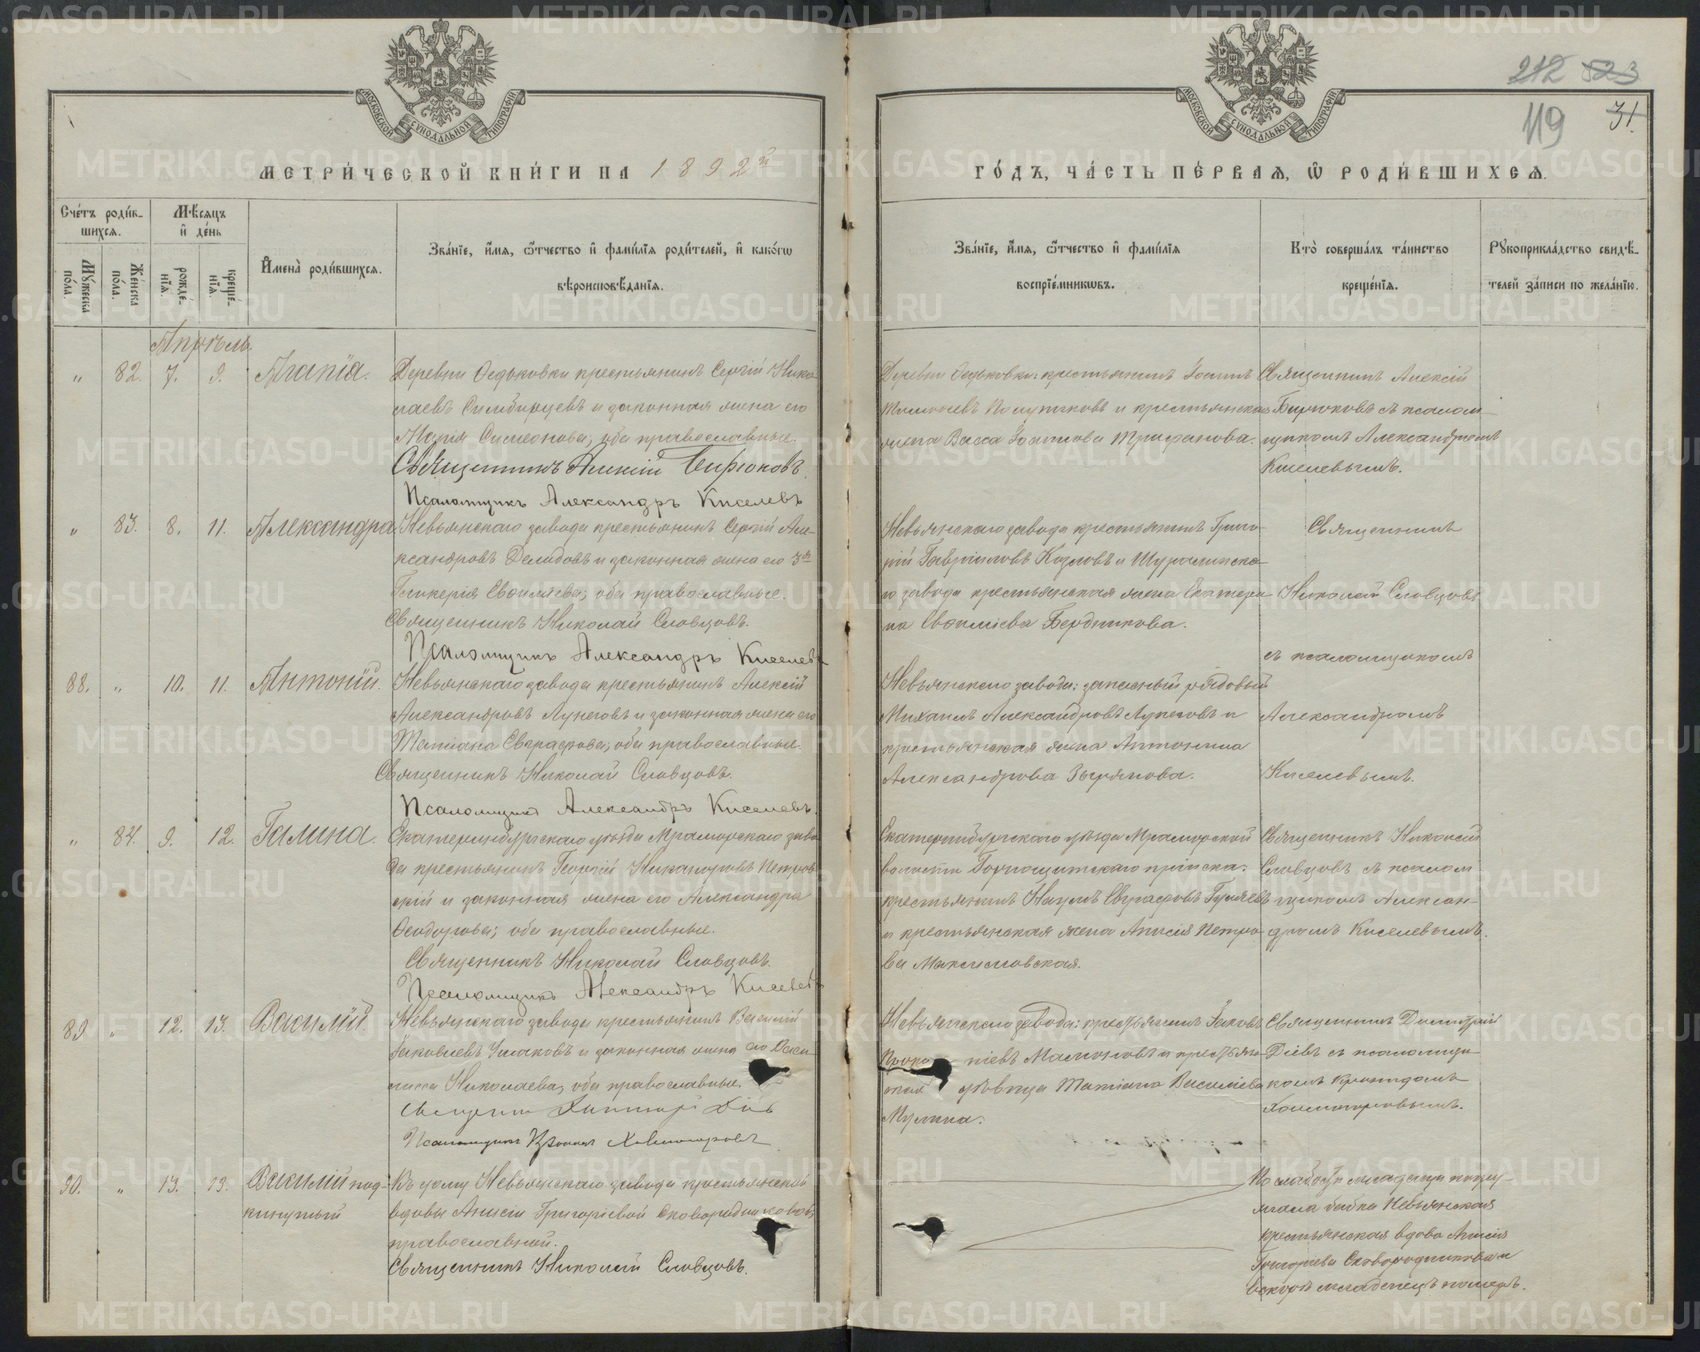 212 523
119 31.
МОСКОВСКОЙ СѴНОДАЛЬНОЙ ТИПОГРАФІИ
МОСКОВСКОЙ СѴНОДАЛЬНОЙ ТИПОГРАФІИ
МЕТРИ́ЧЕСКОЙ КНИ́ГИ НА 1892й
ГО́ДЪ, ЧА́СТЬ ПЕ́РВАѦ, Ѽ РОДИ́ВШИХСѦ.
Сче́тъ роди́в-
шихсѧ.
Мꙋ́жеска по́ла.
Же́нска по́ла.
Мѣ́сѧцъ и҆ де́нь
рожде́-
нїѧ.
креще́-
нїѧ.
И҆мена̀ роди́вшихсѧ.
Зва́нїе, и҆́мѧ, ѻ҆́тчество и҆ фами́лїѧ роди́телей, и҆ како́гѡ
вѣроисповѣ́данїѧ.
Зва́нїе, и҆́мѧ, ѻ҆́тчество и҆ фами́лїѧ
воспрїе́мникѡвъ.
Кто̀ соверша́лъ та́инство
креще́нїѧ.
Рꙋкоприкла́дство свидѣ́-
телей за́писи по жела́нїю.
Апрѣль.
" 82. 7. 9. Агапія.
Деревни Ѳедьковки крестьянинъ Сергій Нико-
лаевъ и законная жена его
Марія Симеонова, оба православные.
Священникъ Алексій Бирюковъ.
Псаломщикъ Александръ Киселевъ
Деревни Ѳедьковки крестьянинъ Іоаннъ
и крестьянская
жена Васса Іоаннова Трифанова.
Священникъ Алексій
Бирюковъ съ псалом-
щикомъ Александромъ
Киселевымъ.
" 83. 8. 11. Александра
Невьянскаго завода крестьянинъ Сергій Але-
ксандровъ Демидовъ и законная жена его
Гликерія Евѳиміева; оба православные.
Священникъ Николай Словцовъ.
Псаломщикъ Александръ Киселевъ
Невьянскаго завода крестьянинъ Григо-
рій Гавріиловъ Козловъ и Шуралинска-
го завода крестьянская жена Екатери-
на Евѳиміева Бердникова.
Священникъ
Николай Словцовъ
съ псаломщикомъ
Александромъ
Киселевымъ.
88. " 10. 11. Антоній.
Невьянскаго завода крестьянинъ Алексій
Александровъ Лунеговъ и законная жена его
Татіана Евграфова, оба православные.
Священникъ Николай Словцовъ.
Псаломщикъ Александръ Киселевъ.
Невьянскаго завода: запасный рядовый
Михаилъ Александровъ Лунеговъ и
крестьянская жена Антонина
Александрова Зырянова.
" 84. 9. 12. Галина.
Екатеринбургскаго уѣзда Мраморскаго заво-
да крестьянинъ Георгій Никаноровъ Петров-
скій и законная жена его Александра
Ѳеодорова; оба православные.
Священникъ Николай Словцовъ.
Псаломщикъ Александръ Киселевъ
Екатеринбургскаго уѣзда Мраморской
волости Горнощитскаго пріиска:
крестьянинъ Наумъ Евграфовъ Гуляевъ
и крестьянская жена Анисія Петро-
ва Максимовская.
Священникъ Николай
Словцовъ съ псалом-
щикомъ Алексан-
дромъ Киселевымъ.
89. " 12. 13. Василій.
Невьянскаго завода крестьянинъ Василій
Іаковлевъ Ушаковъ и законная жена его
Николаева, оба православные.
Священникъ Димитрій Діевъ
Псаломщикъ
Невьянскаго завода: крестьянинъ Іаковъ
Мамоновъ и крестьян-
ская дѣвица Татіана Василіева
Мулина.
Священникъ Димитрій
Діевъ съ псаломщи-
комъ
90. " 13. 13. Василій под-
кинутый
Въ дому Невьянскаго завода крестьянской
вдовы Анисіи Григоріевой Сковородниковой
православной.
Священникъ Николай Словцовъ.
По слабости младенца погру-
жала бабка Невьянская
крестьянская вдова Анисія
Григорьева Сковородникова и
вскорѣ младенецъ померъ.